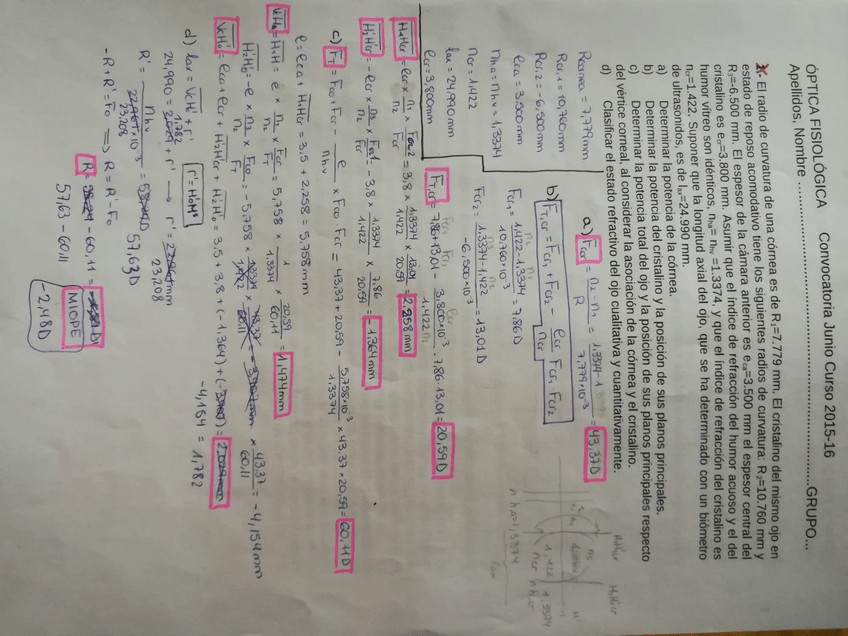 ÓPTICA FISIOLÓGICA Convocatoria Junio Curso 2015-16
Apellidos, Nombre ..........................................................................GRUPO...
2. El radio de curvatura de una córnea es de R₁=7.779 mm. El cristalino del mismo ojo en
estado de reposo acomodativo tiene los siguientes radios de curvatura: R₂=10.760 mm y
R₃=-6.500 mm. El espesor de la cámara anterior es eca=3.500 mm el espesor central del
cristalino es ecr=3.800 mm. Asumir que el índice de refracción del humor acuoso y el del
humor vítreo son idénticos, nha= nhv =1.3374, y que el índice de refracción del cristalino es
ncr=1.422. Suponer que la longitud axial del ojo, que se ha determinado con un biómetro
de ultrasonidos, es de lax=24.990 mm.
a) Determinar la potencia de la córnea.
b) Determinar la potencia del cristalino y la posición de sus planos principales.
c) Determinar la potencia total del ojo y la posición de sus planos principales respecto
del vértice corneal, al considerar la asociación de la córnea y el cristalino.
d) Clasificar el estado refractivo del ojo cualitativa y cuantitativamente.
Rcornea = 7,779mm
Rcr,1 = 10,760mm
Rcr,2 = -6,500mm
eca = 3,500mm
nha = nhv = 1,3374
ncr = 1,422
lax = 24.990mm
ecr = 3,800mm
a) Fco = (n2 - n1) / R = (1,3374 - 1) / 7,779·10⁻³ = 43,37D
b) Fcr = Fcr1 + Fcr2 - (ecr / ncr) Fcr1 Fcr2
Fcr1 = (1,422 - 1,3374) / 10,760·10⁻³ = 7,86D
Fcr2 = (1,3374 - 1,422) / -6,500·10⁻³ = 13,01D
Fcr = 7,86 + 13,01 - (3,800·10⁻³ / 1,422) · 7,86 · 13,01 = 20,59D
H1Hcr = ecr × n1/n2 × Fcr2/Fcr = 3,8 × 1,3374/1,422 × 13,01/20,59 = 2,258mm
H'2H'cr = -ecr × n3/n2 × Fcr1/Fcr = -3,8 × 1,3374/1,422 × 7,86/20,59 = -1,364mm
c) FT = Fco + Fcr - e/nhv × Fco · Fcr = 43,37 + 20,59 - 5,758×10⁻³/1,3374 × 43,37 × 20,59 = 60,11D
e = eca + H1Hcr = 3,5 + 2,258 = 5,758mm
VH0 = H1H = e × n1/n2 × Fcr/FT = 5,758 × 1/1,3374 × 20,59/60,11 = 1,474mm
H'2H'0 = -e × n3/n2 × Fco/FT = -5,758 × 43,37/60,11 = -4,154mm
VcH'0 = eca + ecr + H'2H'cr + H'2H'0 = 3,5 + 3,8 + (-1,364) + (-4,154 = 1,782
d) lax = VcH' + r' r' = H'0M'0
24,990 = 1,782 + r' → r' = 23,208
R' = nhv / 23,208 ×10⁻³ = 57,63D
-R + R' = F0 ⟹ R = R' - F0
R = 57,63 - 60,11 = -2,48D
MIOPE